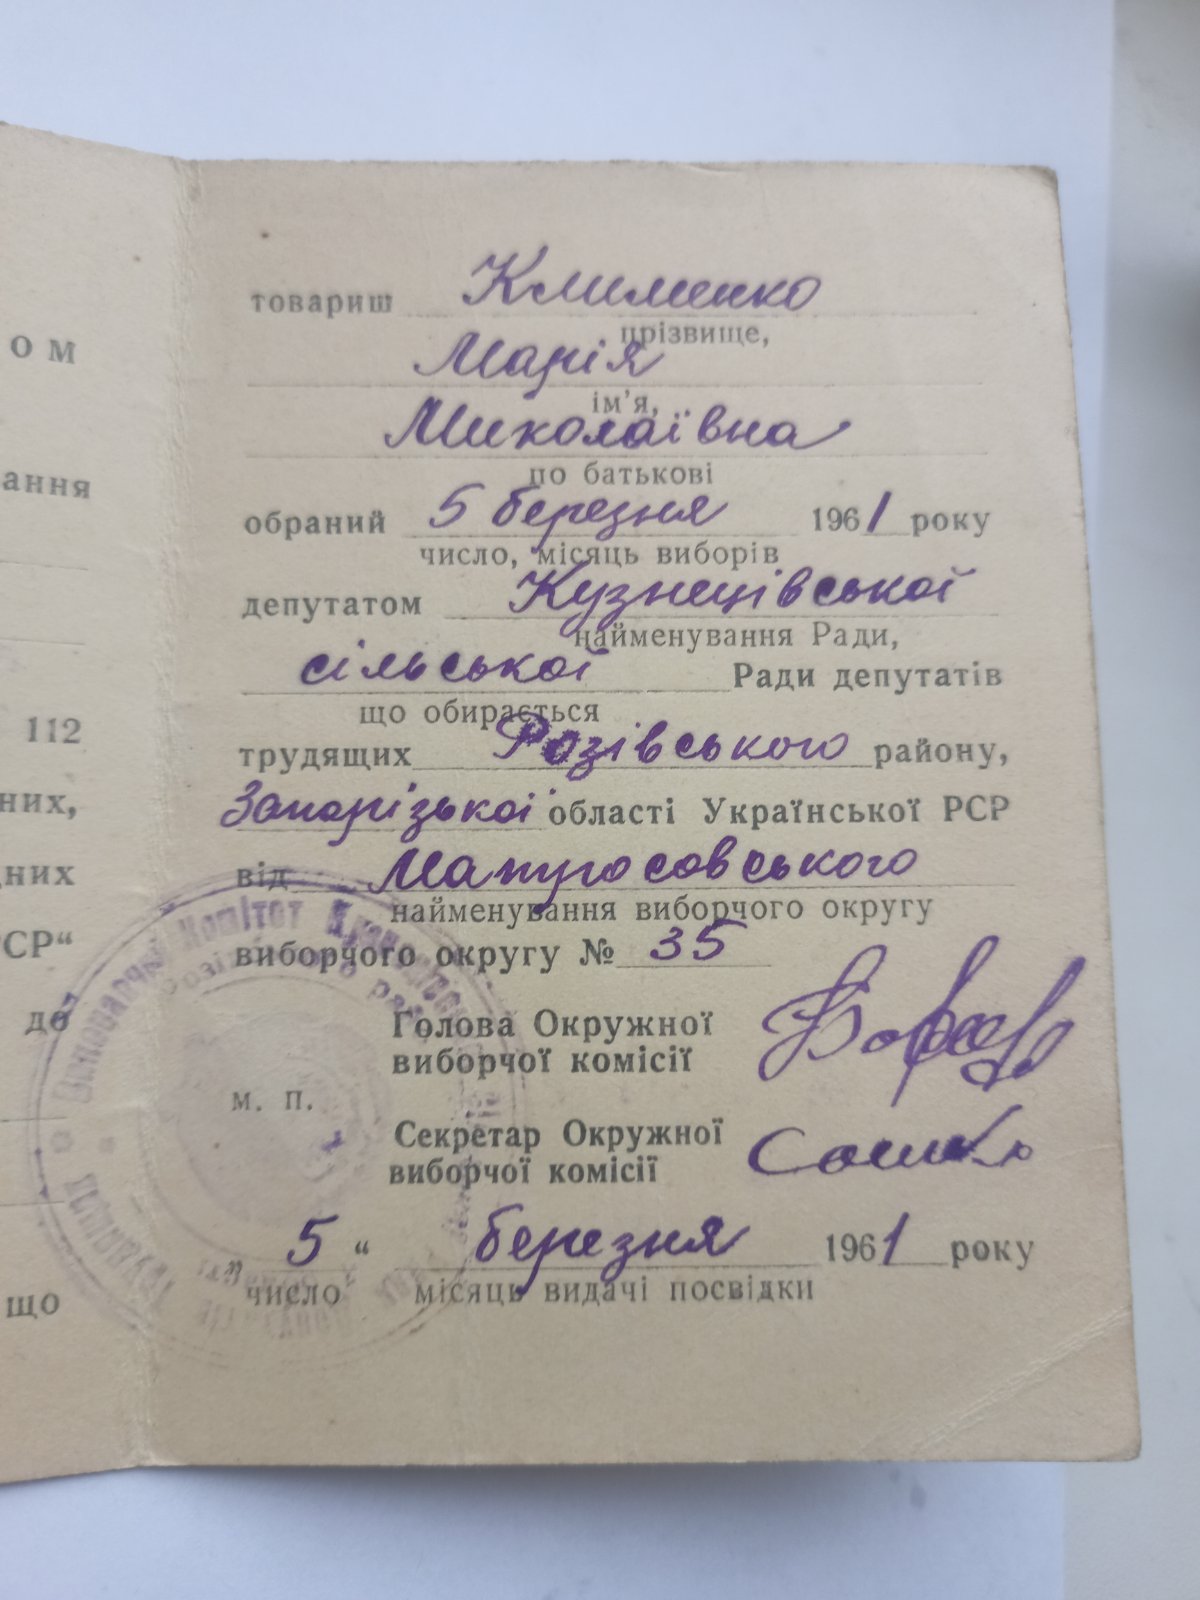 ом
ання
112
них,
них
РСР“
до
що
товариш Клименко
прізвище,
Марія
ім'я,
Миколаївна
по батькові
обраний 5 березня 1961 року
число, місяць виборів
депутатом Кузнецівської
найменування Ради,
сільської Ради депутатів
що обирається
трудящих Розівського району,
Запорізької області Української РСР
від
найменування виборчого округу
виборчого округу № 35
Голова Окружної
виборчої комісії
м. п.
Секретар Окружної
виборчої комісії
5 “ березня 1961 року
число місяць видачі посвідки
Виконавчий Комітет